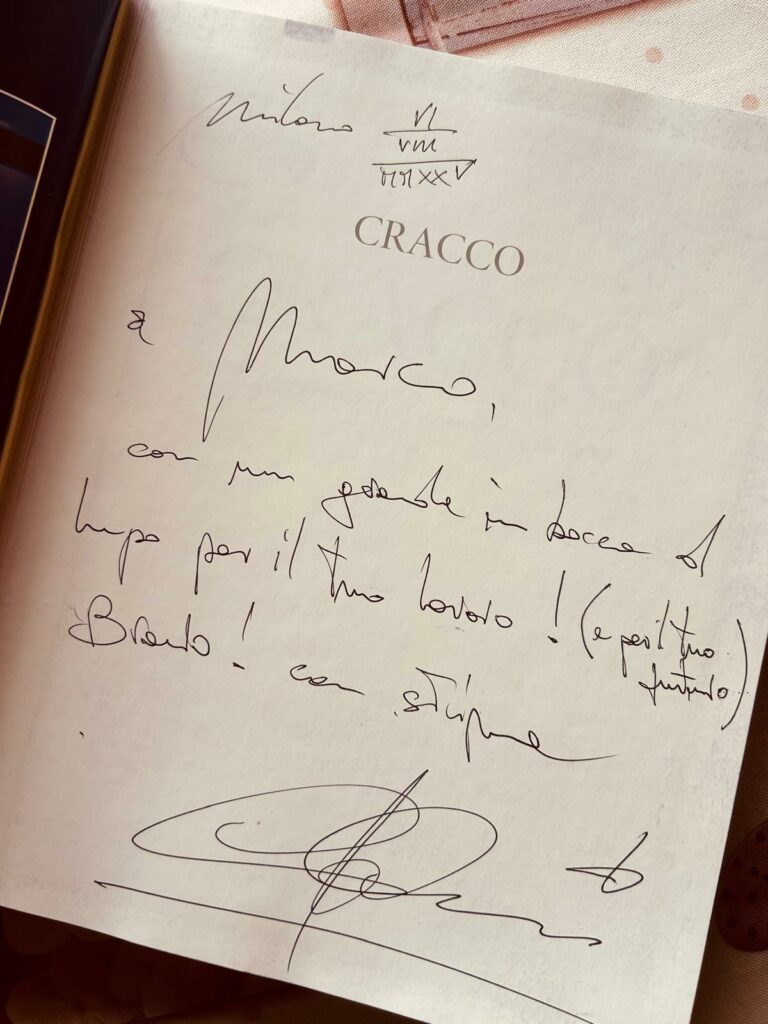 Milano VI
VIII
MMXXV
CRACCO
a Marco,
con un grande in bocca al
lupo per il tuo lavoro! (e per il tuo
futuro)
Bravo! con stima